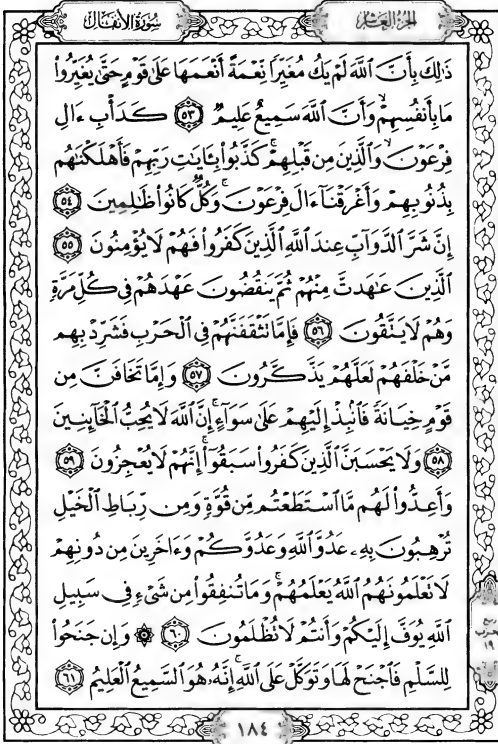 سُورَةُ الأَنفَال الجُزْءُ العَاشِر
ذَٰلِكَ بِأَنَّ ٱللَّهَ لَمۡ يَكُ مُغَيِّرٗا نِّعۡمَةً أَنۡعَمَهَا عَلَىٰ قَوۡمٍ حَتَّىٰ يُغَيِّرُواْ
مَا بِأَنفُسِهِمۡ وَأَنَّ ٱللَّهَ سَمِيعٌ عَلِيمٞ ٥٣ كَدَأۡبِ ءَالِ
فِرۡعَوۡنَ وَٱلَّذِينَ مِن قَبۡلِهِمۡۚ كَذَّبُواْ بِـَٔايَٰتِ رَبِّهِمۡ فَأَهۡلَكۡنَٰهُم
بِذُنُوبِهِمۡ وَأَغۡرَقۡنَآ ءَالَ فِرۡعَوۡنَۚ وَكُلّٞ كَانُواْ ظَٰلِمِينَ ٥٤
إِنَّ شَرَّ ٱلدَّوَآبِّ عِندَ ٱللَّهِ ٱلَّذِينَ كَفَرُواْ فَهُمۡ لَا يُؤۡمِنُونَ ٥٥
ٱلَّذِينَ عَٰهَدتَّ مِنۡهُمۡ ثُمَّ يَنقُضُونَ عَهۡدَهُمۡ فِي كُلِّ مَرَّةٖ
وَهُمۡ لَا يَتَّقُونَ ٥٦ فَإِمَّا تَثۡقَفَنَّهُمۡ فِي ٱلۡحَرۡبِ فَشَرِّدۡ بِهِم
مَّنۡ خَلۡفَهُمۡ لَعَلَّهُمۡ يَذَّكَّرُونَ ٥٧ وَإِمَّا تَخَافَنَّ مِن
قَوۡمٍ خِيَانَةٗ فَٱنۢبِذۡ إِلَيۡهِمۡ عَلَىٰ سَوَآءٍۚ إِنَّ ٱللَّهَ لَا يُحِبُّ ٱلۡخَآئِنِينَ
٥٨ وَلَا يَحۡسَبَنَّ ٱلَّذِينَ كَفَرُواْ سَبَقُوٓاْۚ إِنَّهُمۡ لَا يُعۡجِزُونَ ٥٩
وَأَعِدُّواْ لَهُم مَّا ٱسۡتَطَعۡتُم مِّن قُوَّةٖ وَمِن رِّبَاطِ ٱلۡخَيۡلِ
تُرۡهِبُونَ بِهِۦ عَدُوَّ ٱللَّهِ وَعَدُوَّكُمۡ وَءَاخَرِينَ مِن دُونِهِمۡ
لَا تَعۡلَمُونَهُمُ ٱللَّهُ يَعۡلَمُهُمۡۚ وَمَا تُنفِقُواْ مِن شَيۡءٖ فِي سَبِيلِ
ٱللَّهِ يُوَفَّ إِلَيۡكُمۡ وَأَنتُمۡ لَا تُظۡلَمُونَ ٦٠ ۞ وَإِن جَنَحُواْ
لِلسَّلۡمِ فَٱجۡنَحۡ لَهَا وَتَوَكَّلۡ عَلَى ٱللَّهِۚ إِنَّهُۥ هُوَ ٱلسَّمِيعُ ٱلۡعَلِيمُ ٦١
ربع
الحزب
١٩
١٨٤